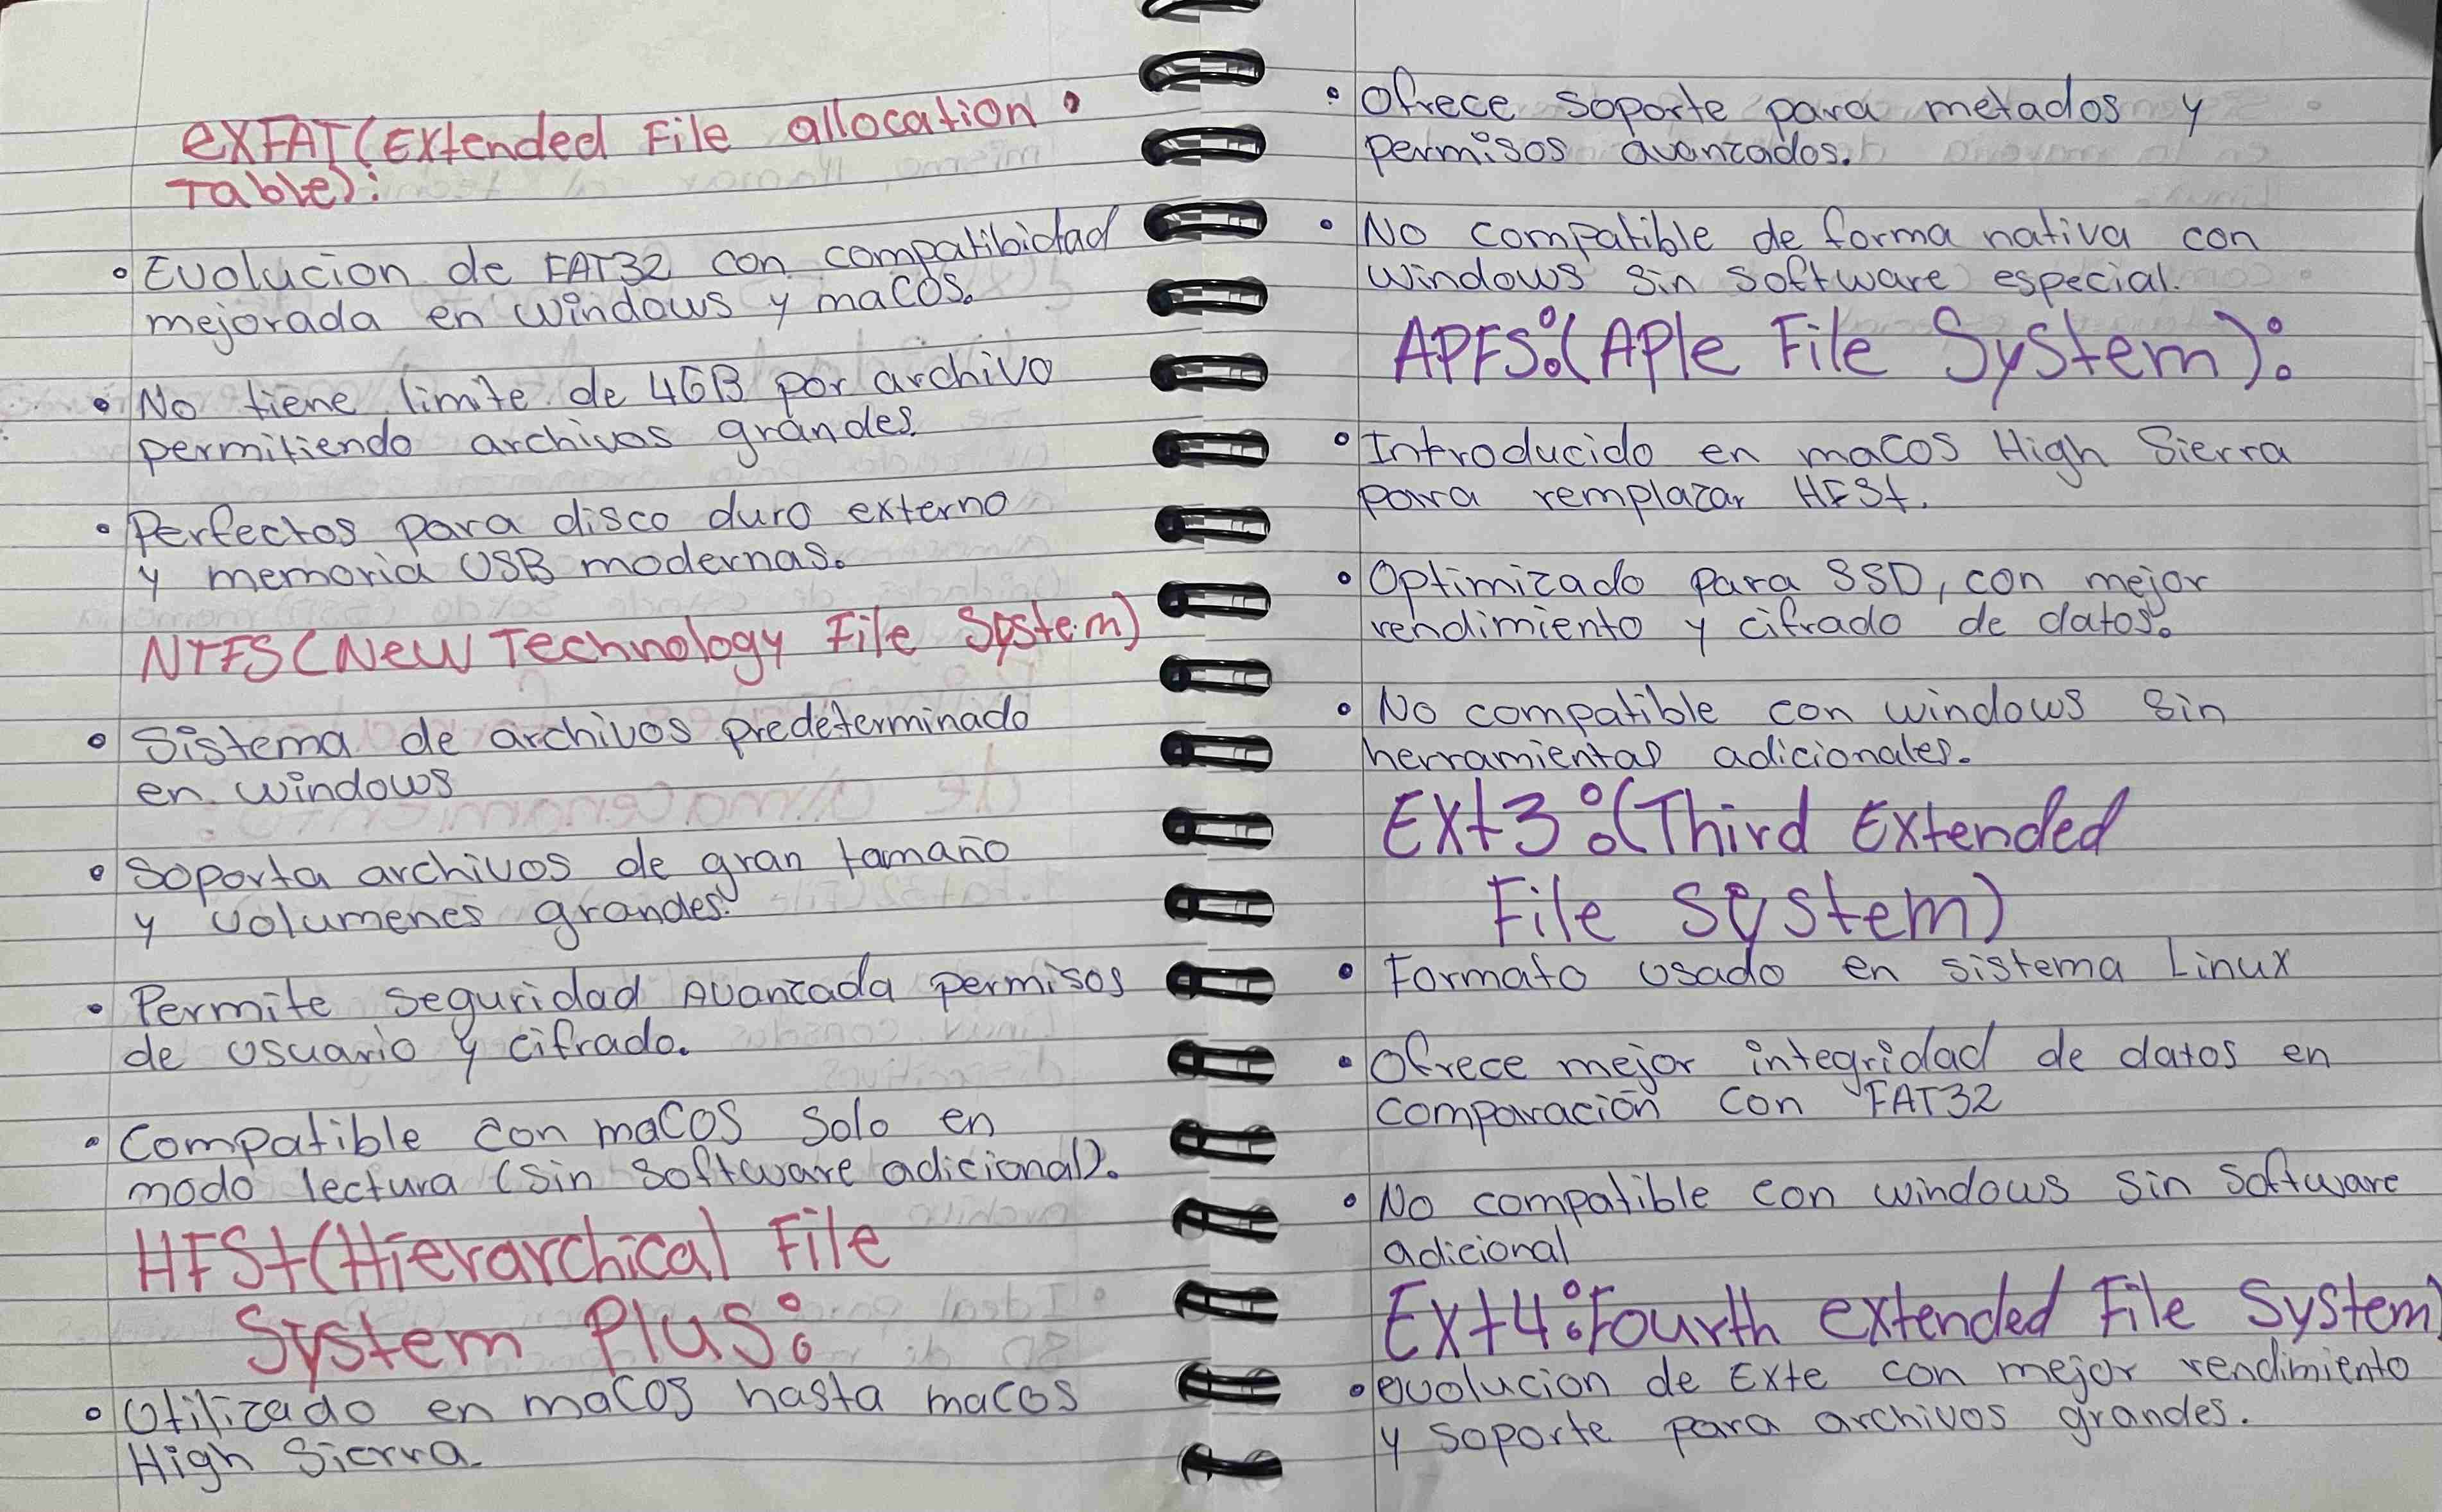 exFAT (Extended File allocation
Table):
• Evolucion de FAT32 con compatibidad
mejorada en windows y macOS.
• No tiene limite de 4GB por archivo
permitiendo archivos grandes.
• Perfectos para disco duro externo
y memoria USB modernas.
NTFS (New Technology File System)
• Sistema de archivos predeterminado
en windows
• Soporta archivos de gran tamaño
y volumenes grandes.
• Permite seguridad Avanzada permisos
de usuario y cifrado.
• Compatible con macOS Solo en
modo lectura (sin software adicional).
HFS+ (Hierarchical File
System Plus:
• Utilizado en macos hasta macos
High Sierra.
• Ofrece soporte para metados y
permisos avanzados.
• No compatible de forma nativa con
windows sin software especial.
APFS: (Aple File System):
• Introducido en macos High Sierra
para remplazar HFS+.
• Optimizado para SSD, con mejor
rendimiento y cifrado de datos.
• No compatible con windows sin
herramientas adicionales.
Ext3: (Third Extended
File System)
• Formato usado en sistema Linux
• Ofrece mejor integridad de datos en
comparación con FAT32
• No compatible con windows sin software
adicional
Ext4: Fourth extended File System)
• evolucion de Exte con mejor rendimiento
y soporte para archivos grandes.